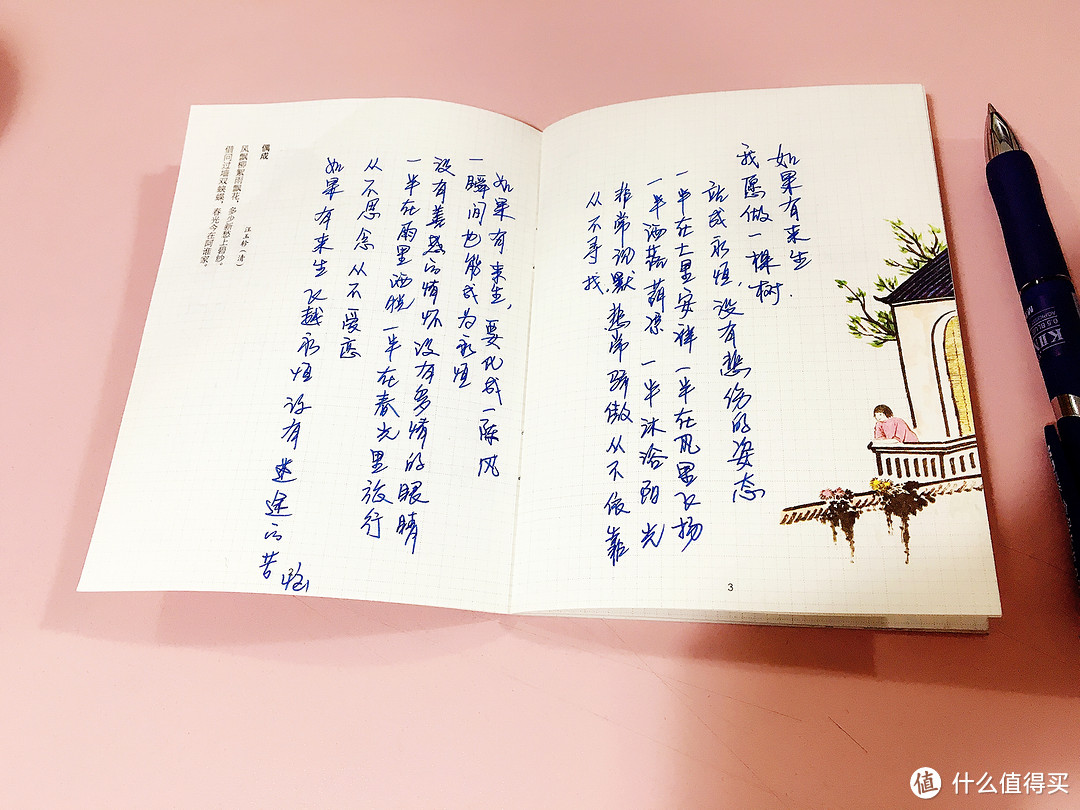 如果有来生
我愿做一棵树.
站成永恒,没有悲伤的姿态
一半在土里安祥 一半在风里飞扬
一半洒落荫凉 一半沐浴阳光
非常沉默 悲常骄傲 从不依靠
从不寻找
3
如果有来生,要化成一阵风
一瞬间也能成为永恒
没有善感的情怀 没有多情的眼睛
一半在雨里洒脱 一半在春光里旅行
从不思念 从不爱恋
如果有来生 飞越永恒 没有迷途的苦恼
偶成
汪玉轸(清)
风飘柳絮雨飘花,多少新愁上碧纱。
借问过墙双蛱蝶,春光今在阿谁家。
值 什么值得买